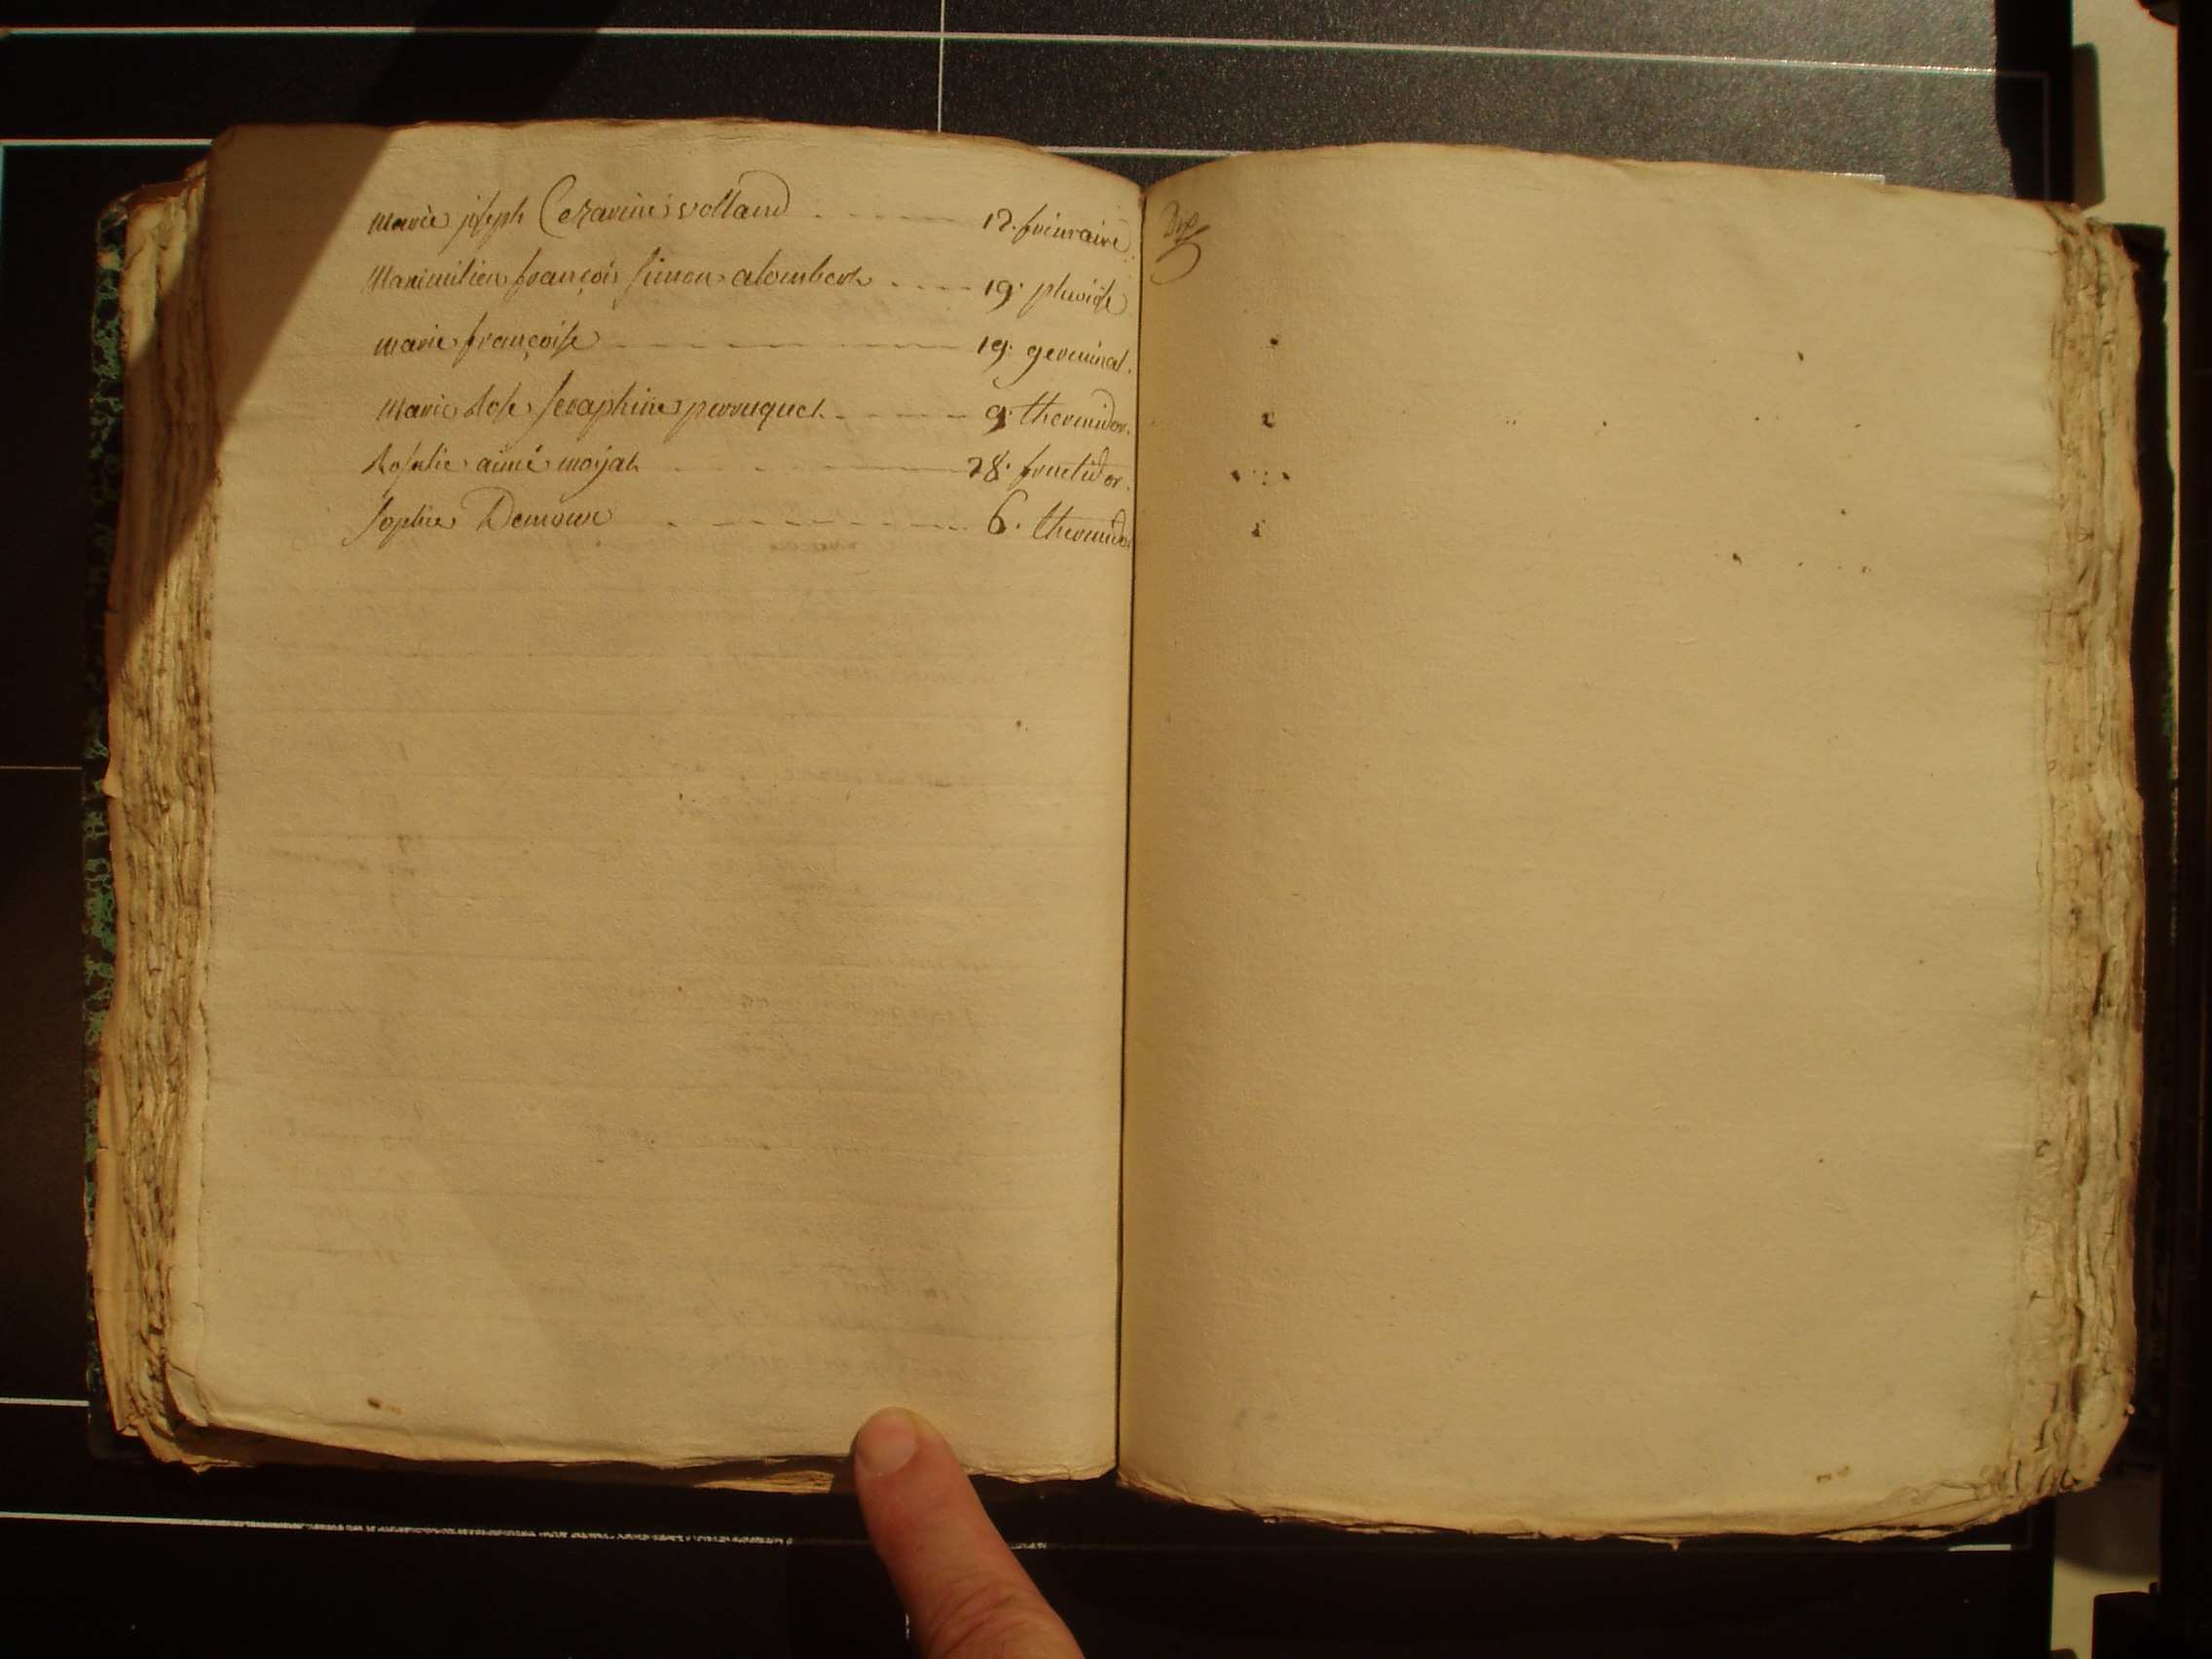 marie joseph Cezarine volland 12. frimaire
Maximilien françois simon alombert 19. pluviose
marie françoise 19. germinal.
Marie Rose seraphine perruquet 9. thermidor.
Rosalie aimé mojat 28. fructidor.
sophie Demoux 6. thermidor